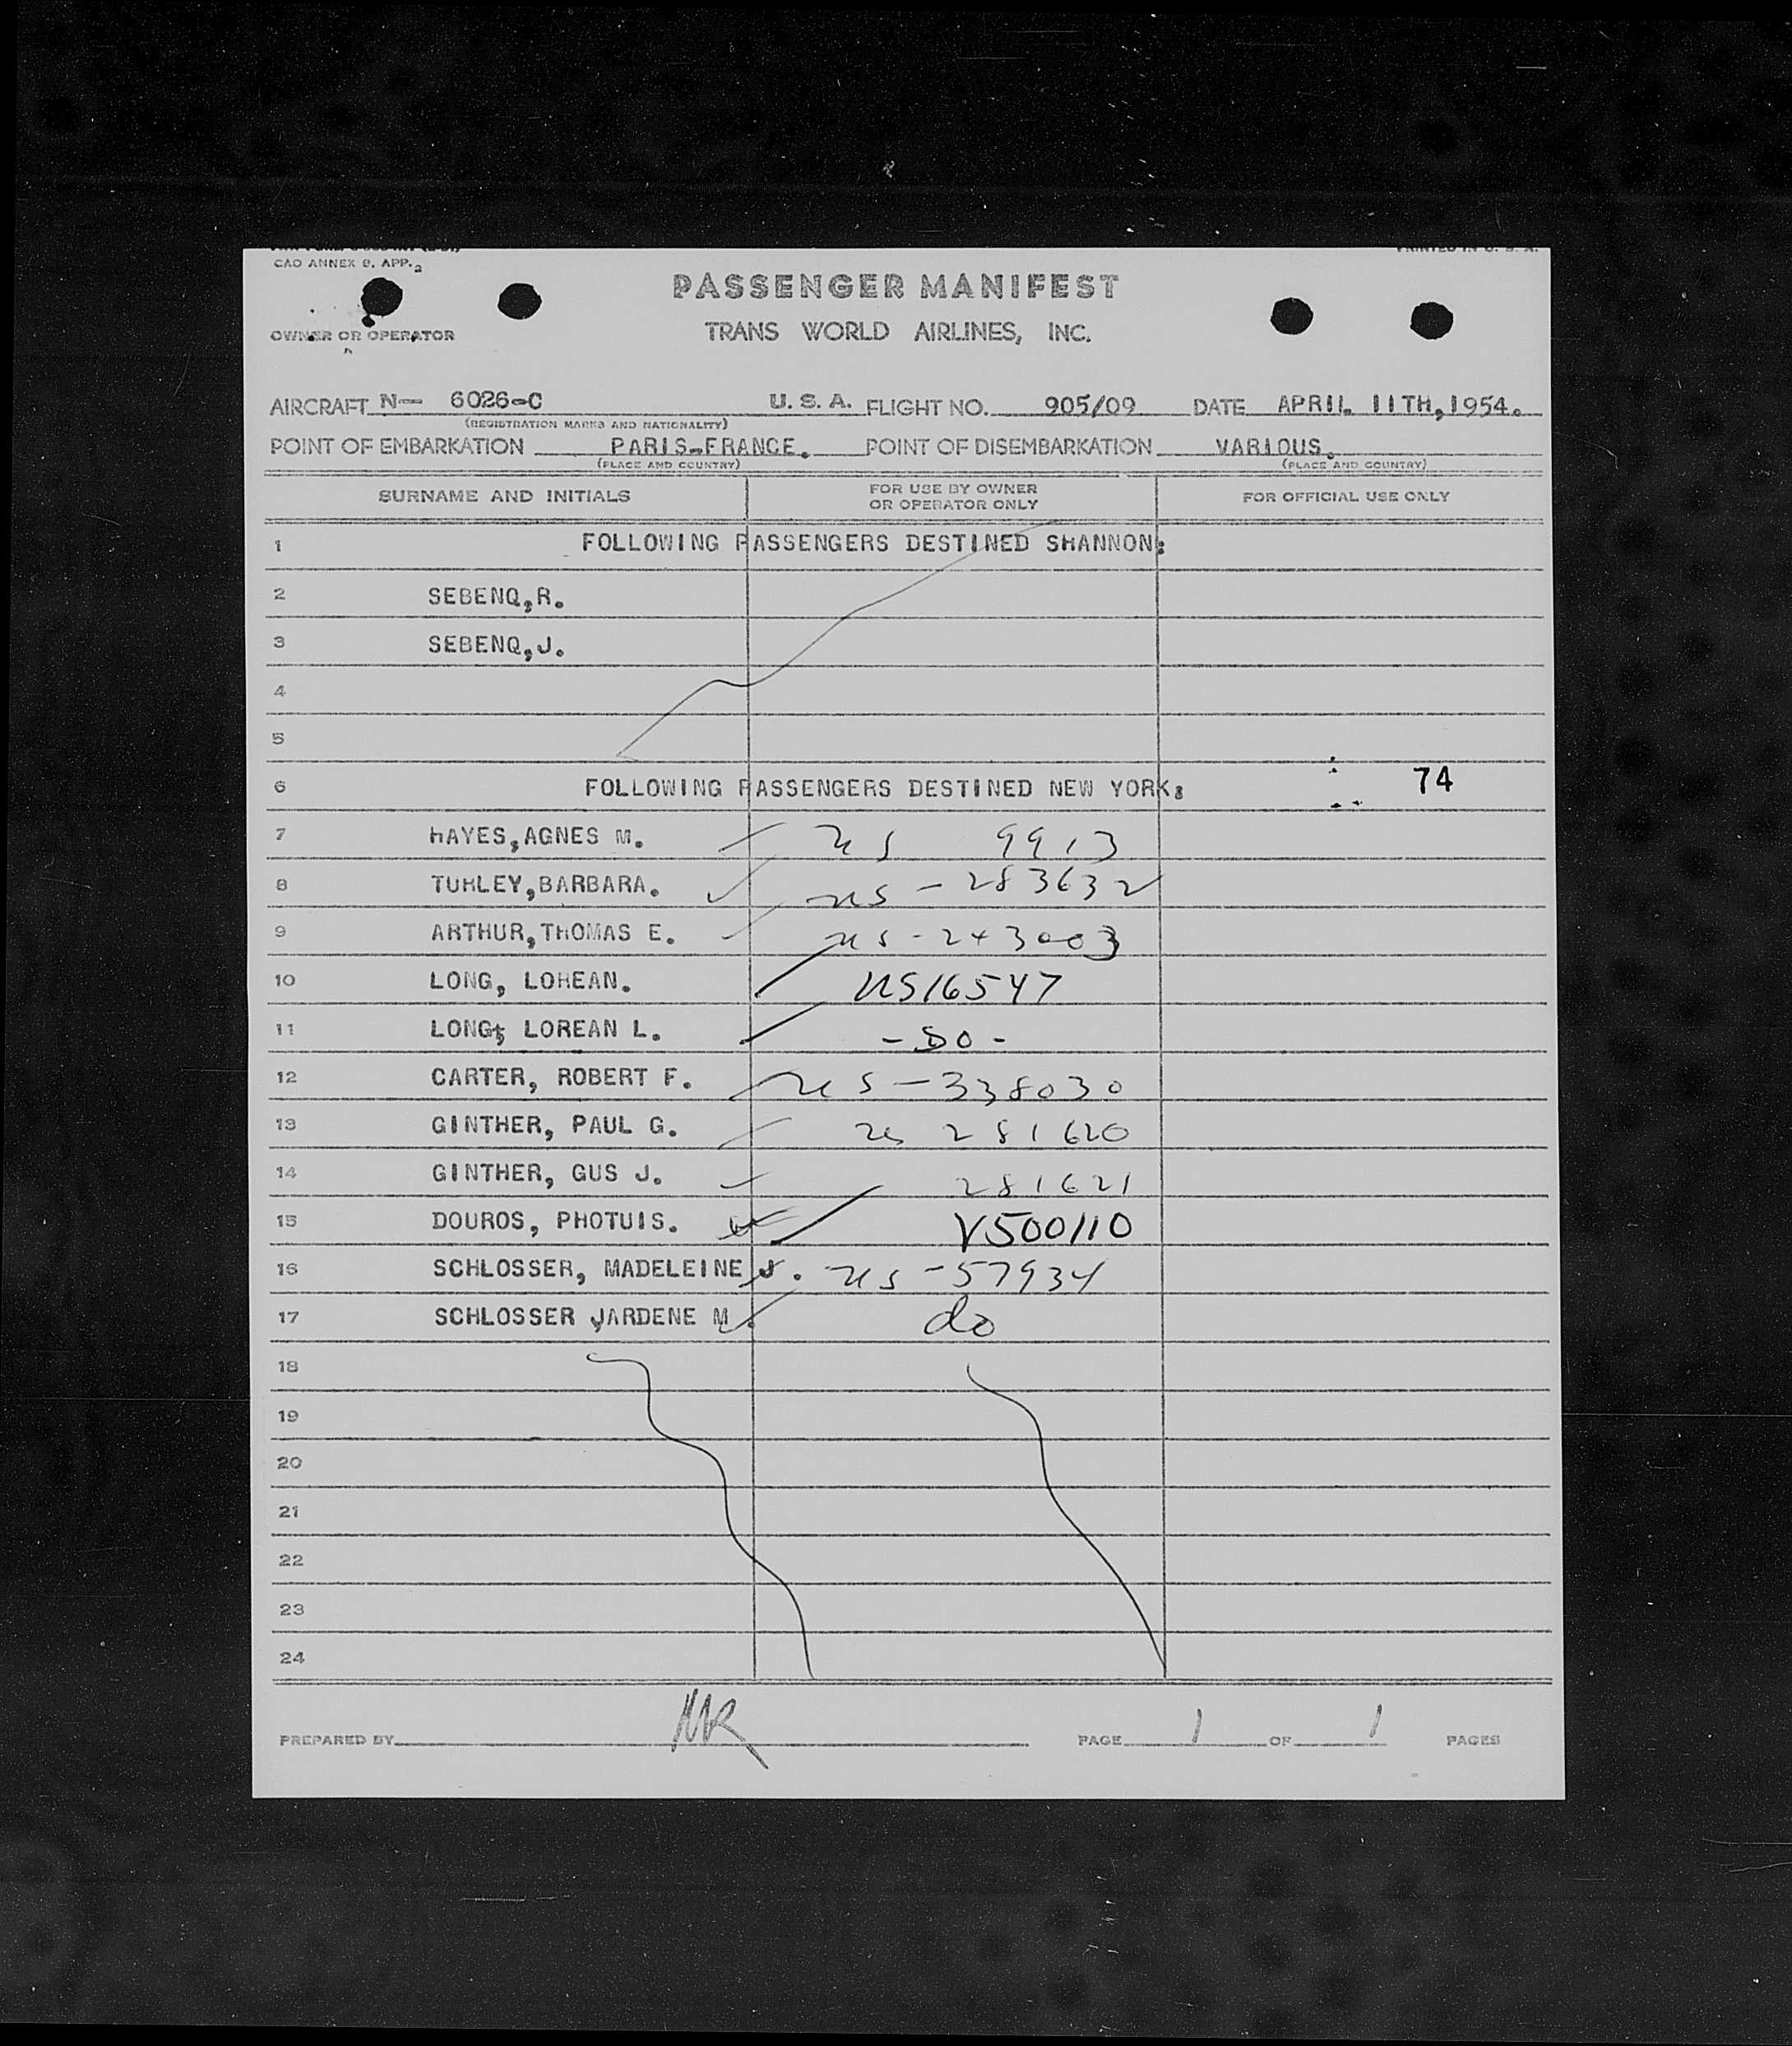 CAO ANNEX 9, APP. 2
PRINTED IN U. S. A.
PASSENGER MANIFEST
OWNER OR OPERATOR TRANS WORLD AIRLINES, INC.
AIRCRAFT N- 6026-C U. S. A. FLIGHT NO. 905/09 DATE APRIL 11TH,1954.
(REGISTRATION MARKS AND NATIONALITY)
POINT OF EMBARKATION PARIS-FRANCE. POINT OF DISEMBARKATION VARIOUS.
(PLACE AND COUNTRY) (PLACE AND COUNTRY)
SURNAME AND INITIALS FOR USE BY OWNER OR OPERATOR ONLY FOR OFFICIAL USE ONLY
1 FOLLOWING PASSENGERS DESTINED SHANNON:
2 SEBENQ,R.
3 SEBENQ,J.
4
5
6 FOLLOWING PASSENGERS DESTINED NEW YORK: 74
7 HAYES,AGNES M. US 9913
8 TURLEY,BARBARA. US - 283632
9 ARTHUR,THOMAS E. US - 243003
10 LONG, LOREAN. US16547
11 LONG, LOREAN L. - DO -
12 CARTER, ROBERT F. US - 338030
13 GINTHER, PAUL G. US 281620
14 GINTHER, GUS J. 281621
15 DOUROS, PHOTUIS. V500110
16 SCHLOSSER, MADELEINE J. US - 57934
17 SCHLOSSER JARDENE M. do
18
19
20
21
22
23
24
PREPARED BY MR PAGE 1 OF 1 PAGES